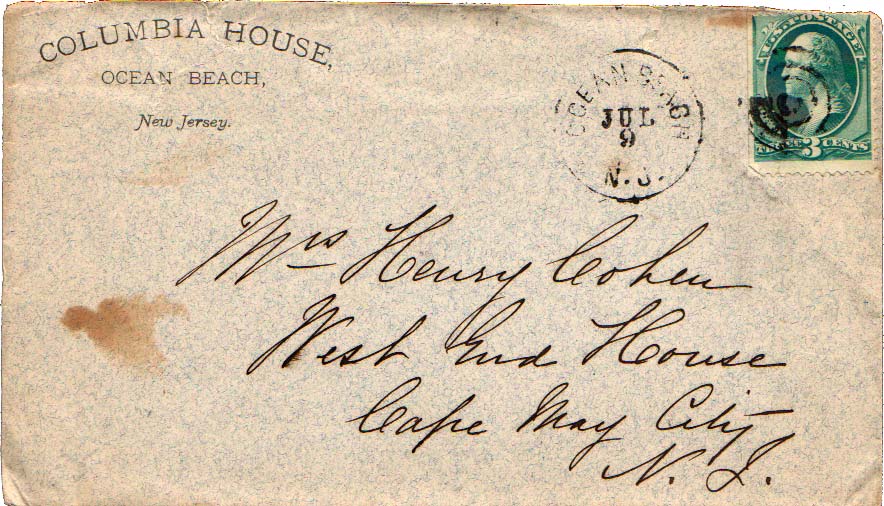 COLUMBIA HOUSE,
OCEAN BEACH,
New Jersey.
OCEAN BEACH
JUL
9
N.J.
U.S. POSTAGE
THREE 3 CENTS
Mrs Henry Cohen
West End House
Cape May City
N. J.